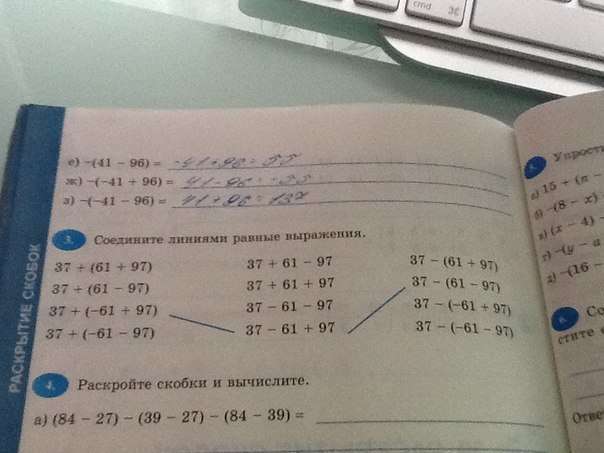 cmd ⌘
РАСКРЫТИЕ СКОБОК
е) −(41 − 96) = -41+96=55
ж) −(−41 + 96) = 41-96=-55
з) −(−41 − 96) = 41+96=137
3. Соедините линиями равные выражения.
37 + (61 + 97) 37 + 61 − 97 37 − (61 + 97)
37 + (61 − 97) 37 + 61 + 97 37 − (61 − 97)
37 + (−61 + 97) 37 − 61 − 97 37 − (−61 + 97)
37 + (−61 − 97) 37 − 61 + 97 37 − (−61 − 97)
4. Раскройте скобки и вычислите.
а) (84 − 27) − (39 − 27) − (84 − 39) =
Упрости
а) 15 + (n −
б) −(8 − x)
в) (x − 4) −
г) −(y − a
д) −(16 −
6. Со
стите
Ответ